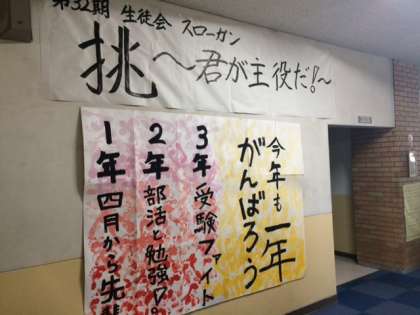 第32期 生徒会 スローガン
挑〜君が主役だ!〜
今年も一年
がんばろう
3年 受験ファイト
2年 部活と勉強
1年 四月から先輩